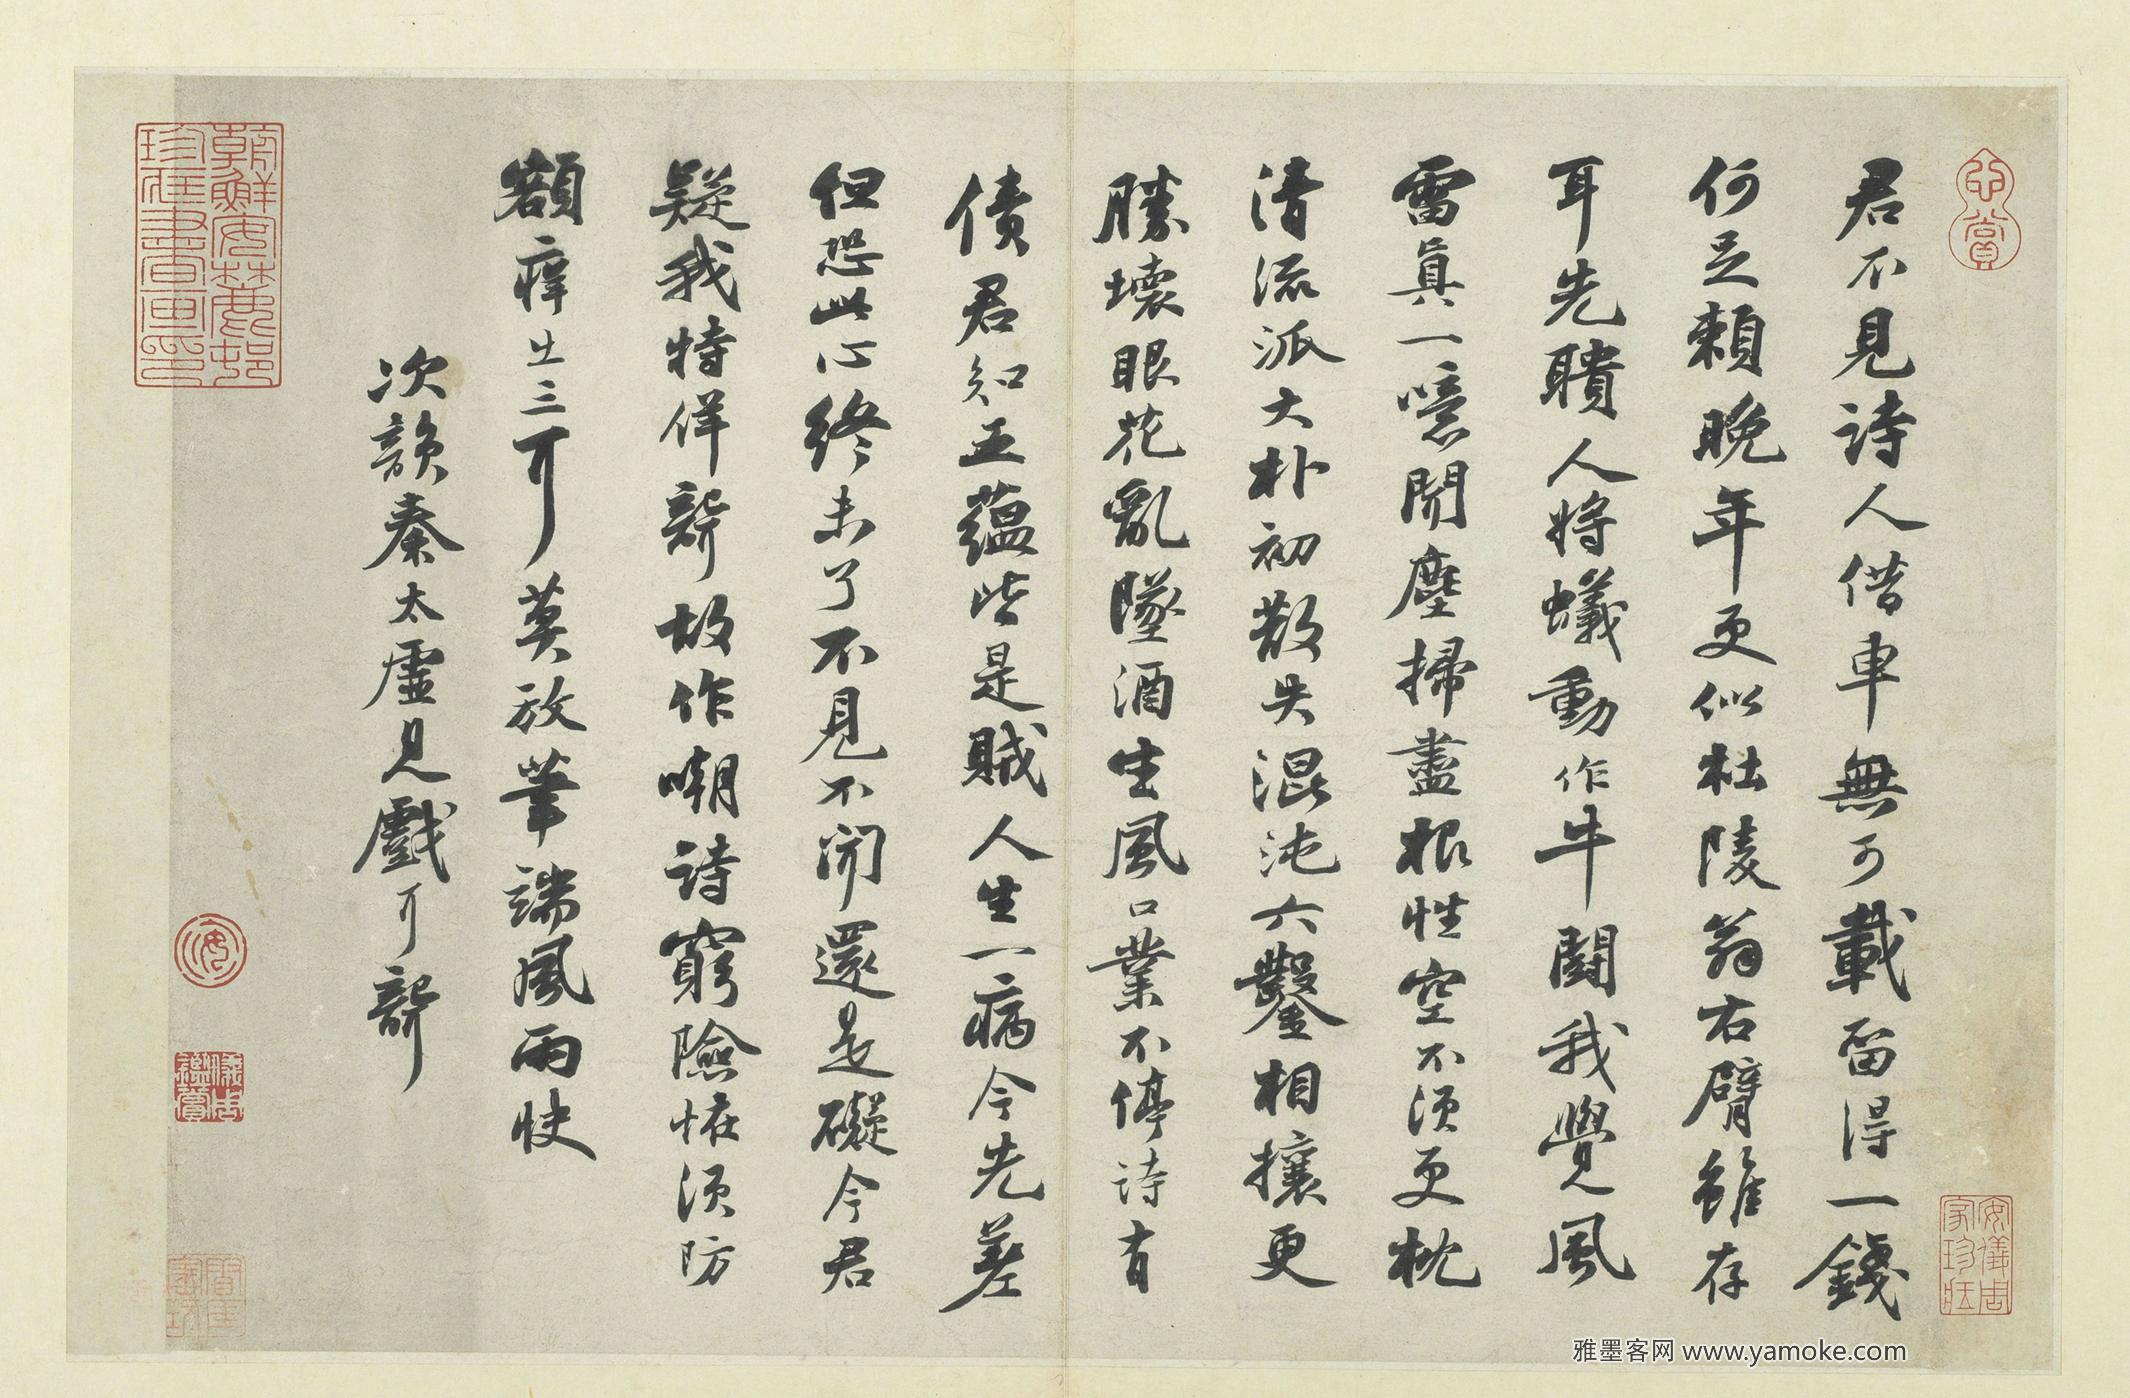 君不見詩人借車無可載留得一錢
何足賴晚年更似杜陵翁右臂雖存
耳先聵人將蟻動作牛鬪我覺風
雷真一噫聞塵掃盡根性空不須更枕
清流派大朴初散失混沌六鑿相攘更
勝壞眼花亂墜酒生風口業不停詩有
債君知五蘊皆是賊人生一病今先差
但恐此心終未了不見不聞還是礙今君
疑我特佯聾故作嘲詩窮險怪須防
額癢出三耳莫放筆端風雨快
次韻秦太虛見戲耳聾
心賞
安儀周家珍藏
朝鮮安麓邨珍藏書畫印
雅墨客网 www.yamoke.com